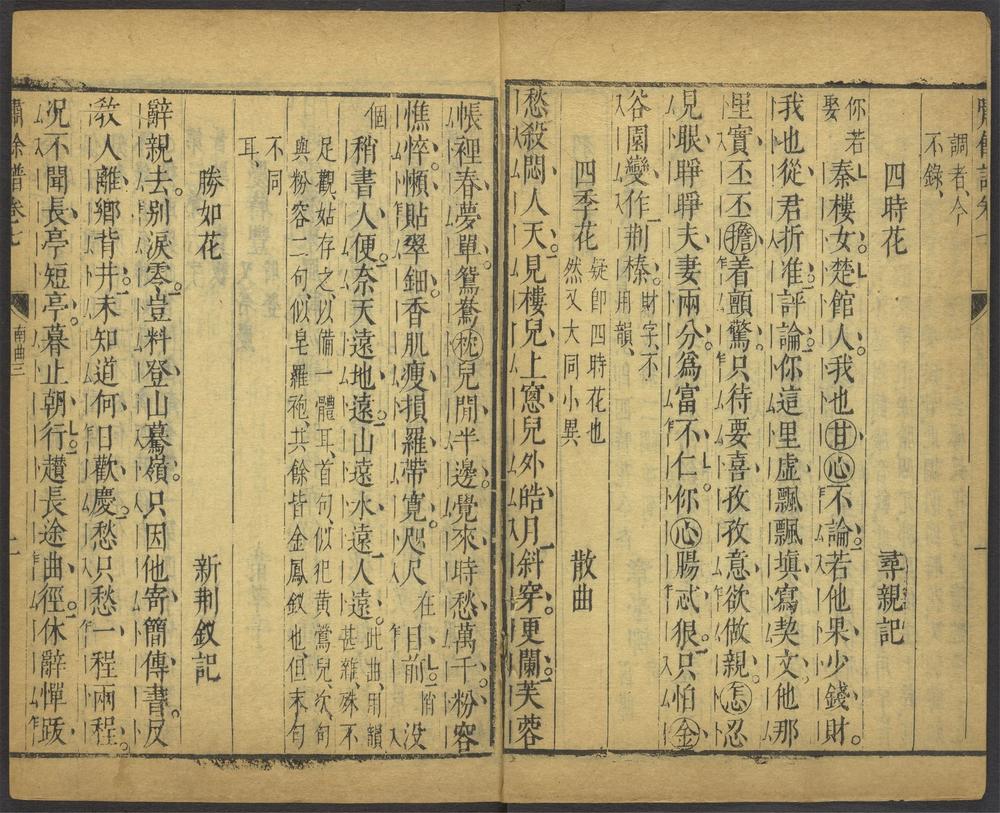 調者、今
不錄、
四時花 尋親記
你若娶秦樓女。楚館人。我也甘心不論。若他果少錢財。
我也從君折准評論。你這里虛飄飄塡寫契文。他那
里實丕丕擔着顫驚。只待要喜孜孜意欲做親。怎忍
見眼睜睜夫妻兩分。爲富不仁。你心腸忒狠。只怕金
谷園變作荆榛。財字、不用韻、
四季花 疑卽四時花也然又大同小異 散曲
愁殺悶人天。見樓兒上窻兒外皓月斜穿。更闌芙蓉
帳裡春夢單。鴛鴦枕兒閒半邊。覺來時愁萬千。粉容
憔悴。懶貼翠鈿。香肌瘦損羅帶寬。咫尺在目前。沒
個稍書人便。奈天遠地遠。山遠水遠。人遠。此曲、用韻甚雜、殊不
足觀、姑存之、以備一體耳、首句、似犯黃鶯兒、次句
與粉容二句、似皂羅袍、共餘皆金鳳釵也、但末句
不同耳、
勝如花 新荆釵記
辭親去。别淚零。豈料登山驀嶺。只因他寄簡傳書。反
敎人離鄉背井。未知道何日歡慶。愁只愁一程兩程。
况不聞長亭短亭。暮止朝行。趲長途曲徑。休辭憚跋
嘯餘譜卷七 南曲三